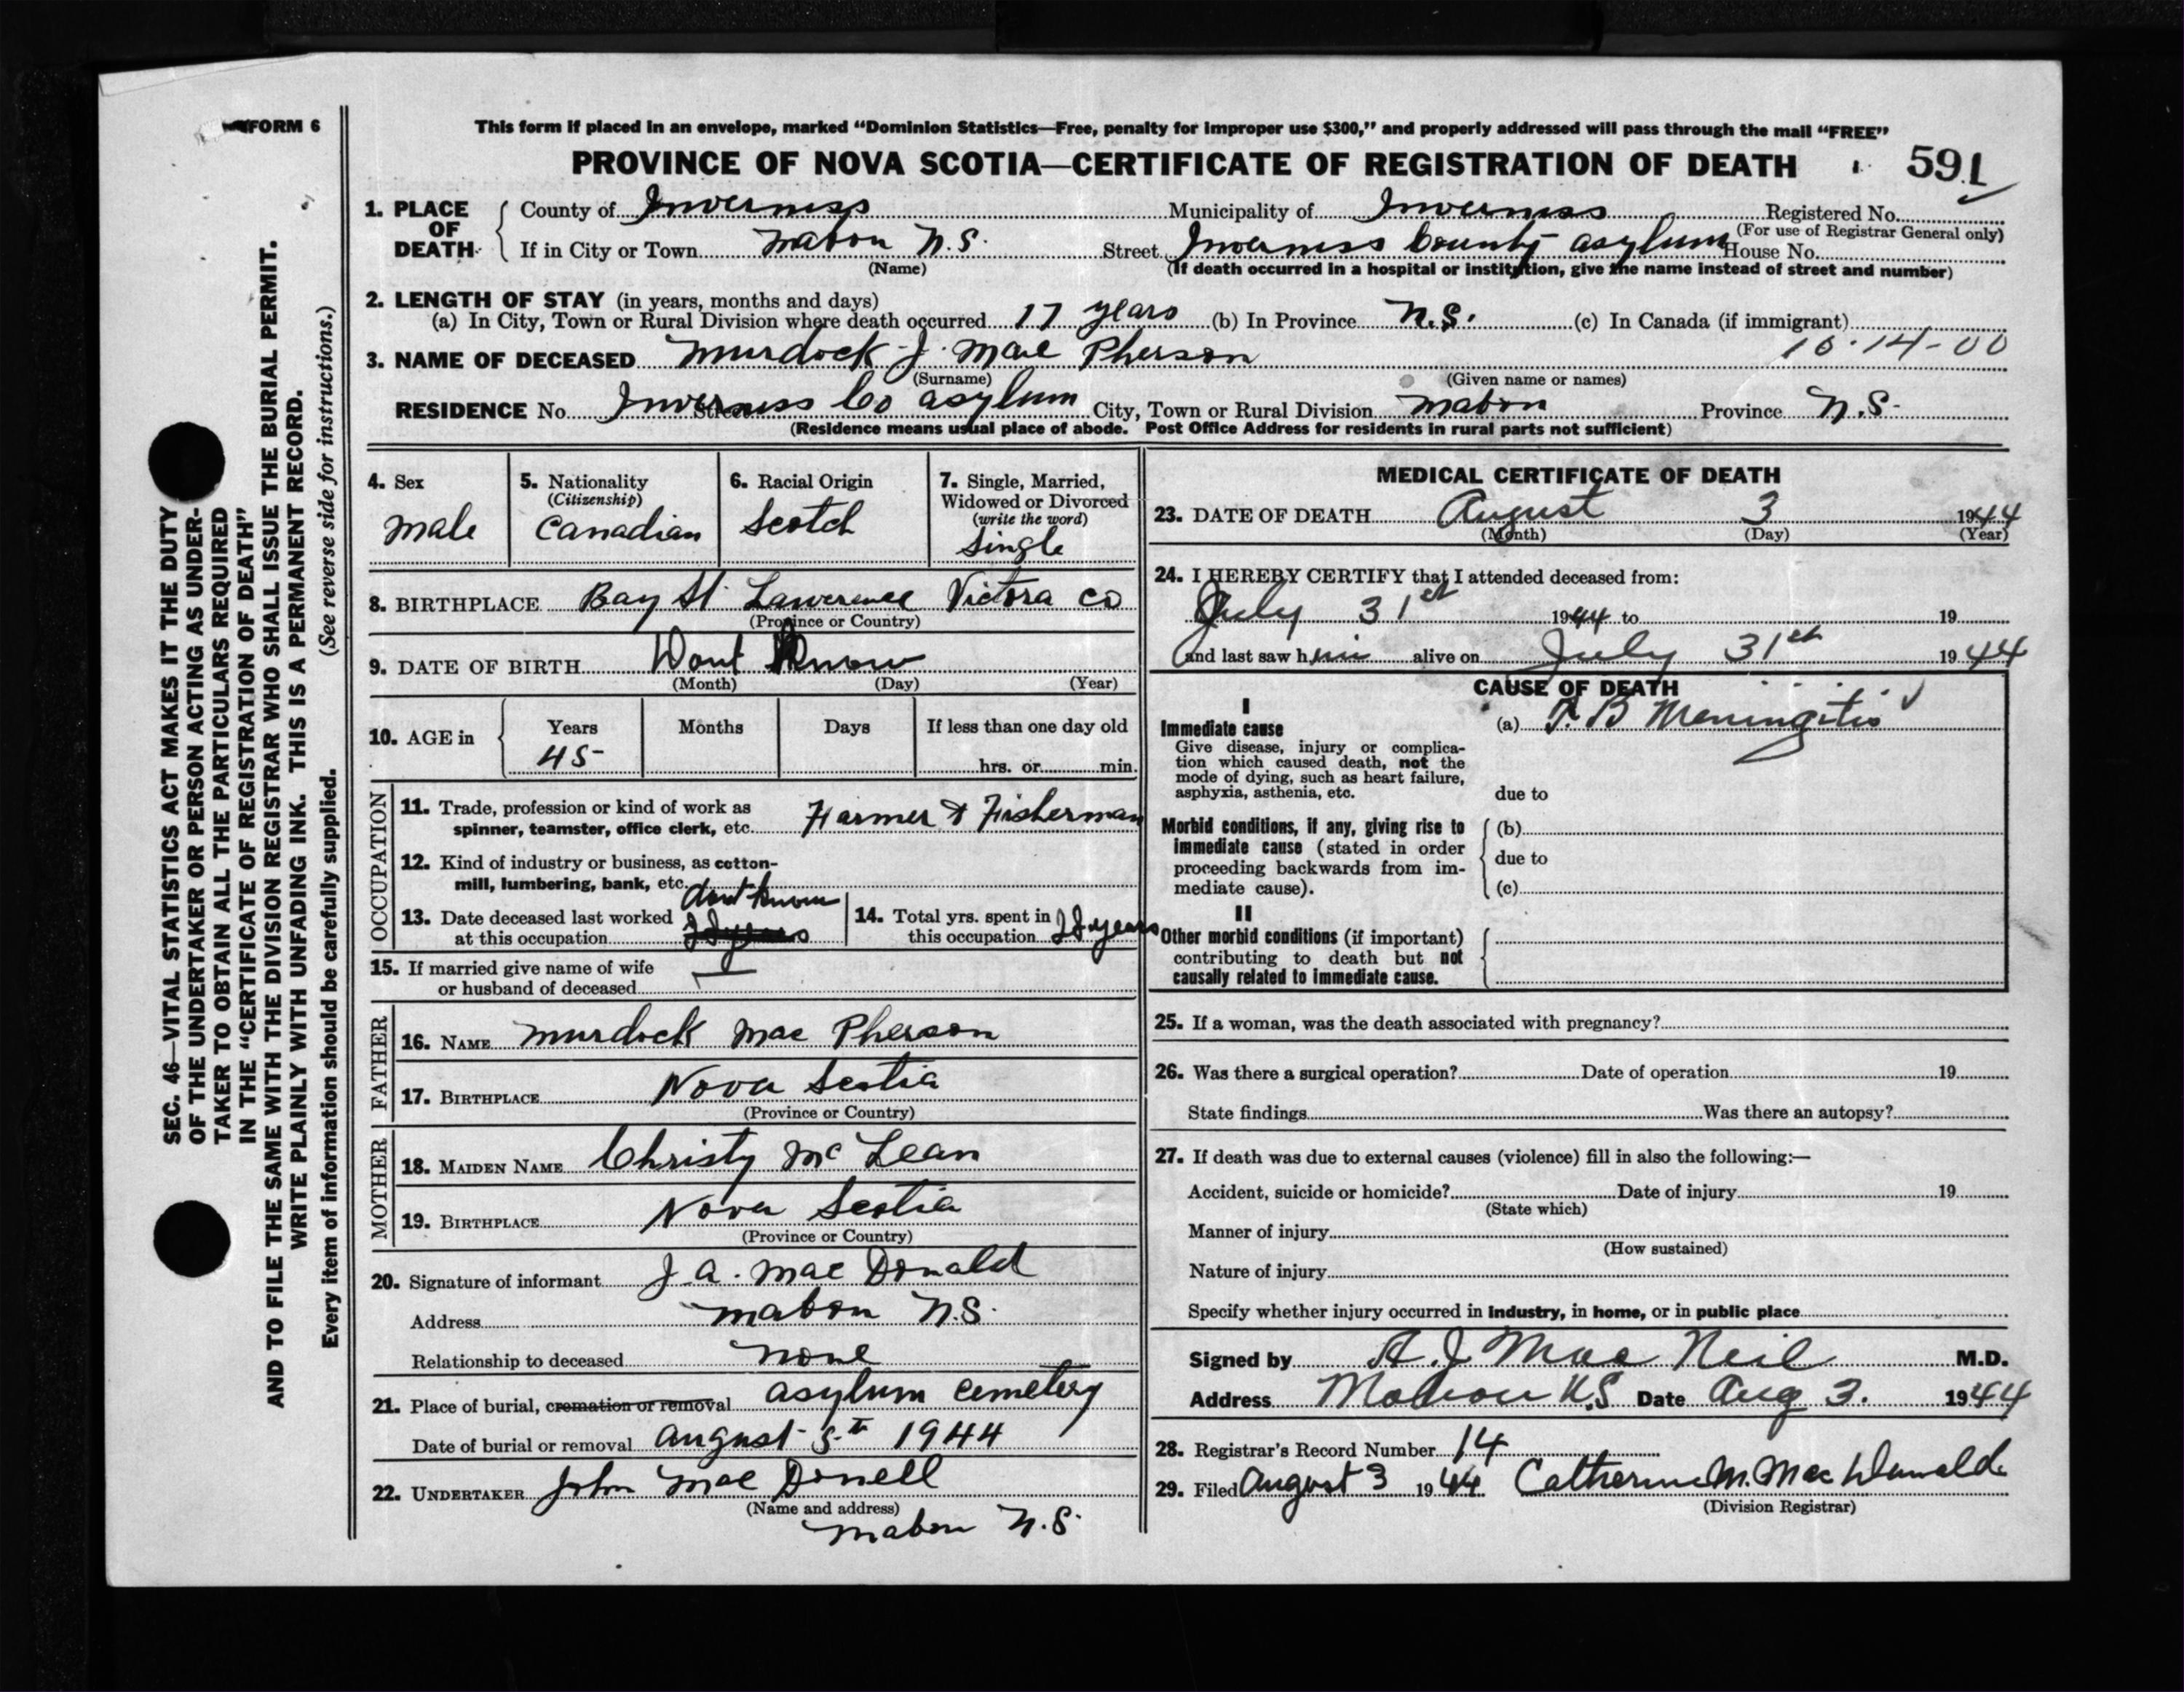 FORM 6
This form if placed in an envelope, marked “Dominion Statistics—Free, penalty for improper use $300,” and properly addressed will pass through the mail “FREE”
PROVINCE OF NOVA SCOTIA—CERTIFICATE OF REGISTRATION OF DEATH 591
1. PLACE OF DEATH County of Inverness Municipality of Inverness Registered No.
(For use of Registrar General only)
If in City or Town Mabou N.S. Street Inverness County asylum House No.
(Name) (If death occurred in a hospital or institution, give the name instead of street and number)
2. LENGTH OF STAY (in years, months and days)
(a) In City, Town or Rural Division where death occurred 17 years (b) In Province N.S. (c) In Canada (if immigrant)
3. NAME OF DECEASED Murdock J. Mac Pherson 10-14-00
(Surname) (Given name or names)
RESIDENCE No. Street Inverness Co asylum City, Town or Rural Division Mabou Province N.S.
(Residence means usual place of abode. Post Office Address for residents in rural parts not sufficient)
4. Sex
male
5. Nationality
(Citizenship)
Canadian
6. Racial Origin
Scotch
7. Single, Married,
Widowed or Divorced
(write the word)
Single
8. BIRTHPLACE Bay St Lawerence Victora Co
(Province or Country)
9. DATE OF BIRTH Dont Know
(Month) (Day) (Year)
10. AGE in
Years Months Days If less than one day old
45 hrs. or min.
OCCUPATION
11. Trade, profession or kind of work as
spinner, teamster, office clerk, etc. Farmer & Fisherman
12. Kind of industry or business, as cotton-
mill, lumbering, bank, etc.
13. Date deceased last worked dont know
at this occupation
14. Total yrs. spent in
this occupation years
15. If married give name of wife
or husband of deceased
FATHER
16. NAME Murdock Mac Pherson
17. BIRTHPLACE Nova Scotia
(Province or Country)
MOTHER
18. MAIDEN NAME Christy Mc Lean
19. BIRTHPLACE Nova Scotia
(Province or Country)
20. Signature of informant J. A. Mac Donald
Address Mabou N.S.
Relationship to deceased None
21. Place of burial, cremation or removal asylum cemetery
Date of burial or removal August 5th 1944
22. UNDERTAKER John Mac Donell
(Name and address)
Mabou N.S.
MEDICAL CERTIFICATE OF DEATH
23. DATE OF DEATH August 3 1944
(Month) (Day) (Year)
24. I HEREBY CERTIFY that I attended deceased from:
July 31st 1944 to 19
and last saw him alive on July 31st 1944
CAUSE OF DEATH
I
Immediate cause
Give disease, injury or complica-
tion which caused death, not the
mode of dying, such as heart failure,
asphyxia, asthenia, etc.
(a) T. B Meningitis
due to
Morbid conditions, if any, giving rise to
immediate cause (stated in order
proceeding backwards from im-
mediate cause).
(b)
due to
(c)
II
Other morbid conditions (if important)
contributing to death but not
causally related to immediate cause.
25. If a woman, was the death associated with pregnancy?
26. Was there a surgical operation? Date of operation 19
State findings Was there an autopsy?
27. If death was due to external causes (violence) fill in also the following:—
Accident, suicide or homicide? Date of injury 19
(State which)
Manner of injury
(How sustained)
Nature of injury
Specify whether injury occurred in industry, in home, or in public place
Signed by A. J. Mac Neil M.D.
Address Mabou N.S Date Aug 3. 1944
28. Registrar's Record Number 14
29. Filed August 3 1944 Catherine M. Mac Donald
(Division Registrar)
SEC. 46—VITAL STATISTICS ACT MAKES IT THE DUTY
OF THE UNDERTAKER OR PERSON ACTING AS UNDER-
TAKER TO OBTAIN ALL THE PARTICULARS REQUIRED
IN THE “CERTIFICATE OF REGISTRATION OF DEATH”
AND TO FILE THE SAME WITH THE DIVISION REGISTRAR WHO SHALL ISSUE THE BURIAL PERMIT.
WRITE PLAINLY WITH UNFADING INK. THIS IS A PERMANENT RECORD.
Every item of information should be carefully supplied. (See reverse side for instructions.)